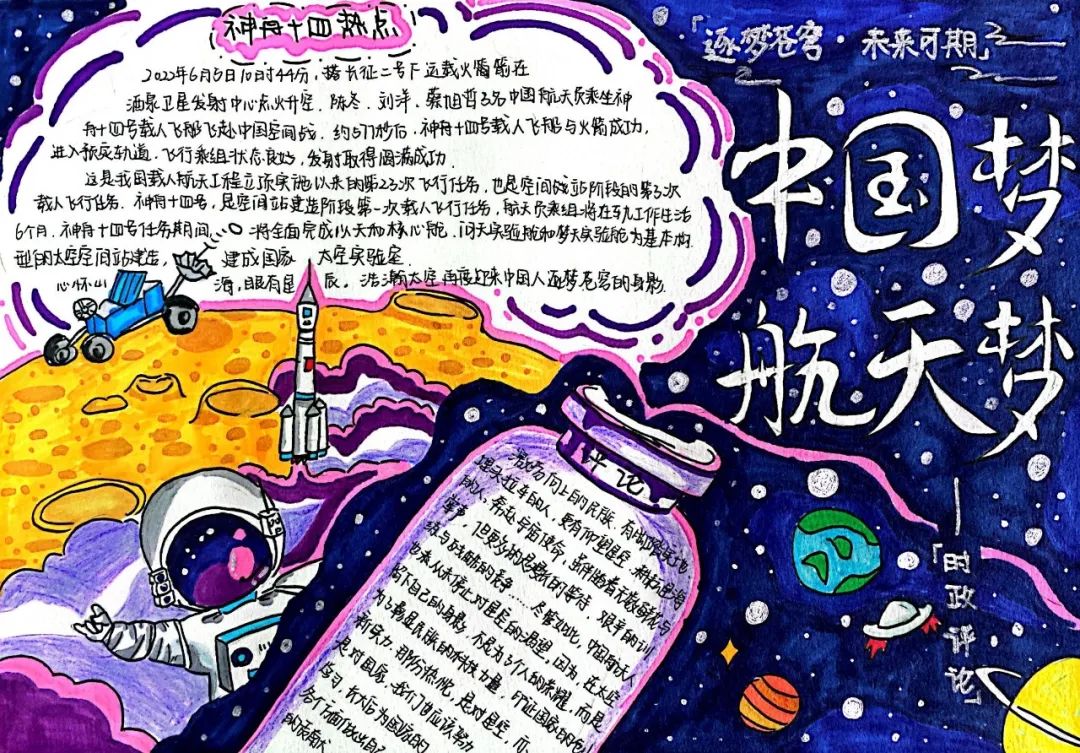 神舟十四热点
2022年6月5日10时44分，搭长征二号F运载火箭箭在
酒泉卫星发射中心点火升空．陈冬．刘洋．蔡旭哲3名中国航天员乘坐神
舟十四号载人飞船飞赴中国空间战．约577秒后，神舟十四号载人飞船与火箭成功，
进入预定轨道，飞行乘组状态良好，发射取得圆满成功．
这是我国载人航天工程立项实施以来的第23次飞行任务，也是空间站阶段的第3次
载人飞行任务．神舟十四号，是空间站建造阶段第一次载人飞行任务，航天员乘组将在轨工作生活
6个月．神舟十四号任务期间 将全面完成以天和核心舱．问天实验舱和梦天实验舱为基本构
型的太空空间站建造， 建成国家 太空实验室．
心怀山 海，眼有星 辰．浩瀚太空再度迎来中国人逐梦苍穹的身影．
「逐梦苍穹 未来可期」
中国梦
航天梦
——「时政评论」
评论
积极向上的民族．有脚踏实地
埋头拉车的人，更有仰望星空
的人；奔赴宇宙使命，虽伴随着无数
掌声，但更多的是 的等待．艰辛的训
练与 的 ……尽管如此，中国航天人
也来从未停止对星空的渴望．因为，在太空
留人自己的身影，不是为了个人的荣耀，而是
为了彰显民族的 力量，印证国家的创
新实力．那份热忱，是对星空，而
是对国家，我们 应该努力
学习，今后为国家的
各个方面做出自己
的贡献